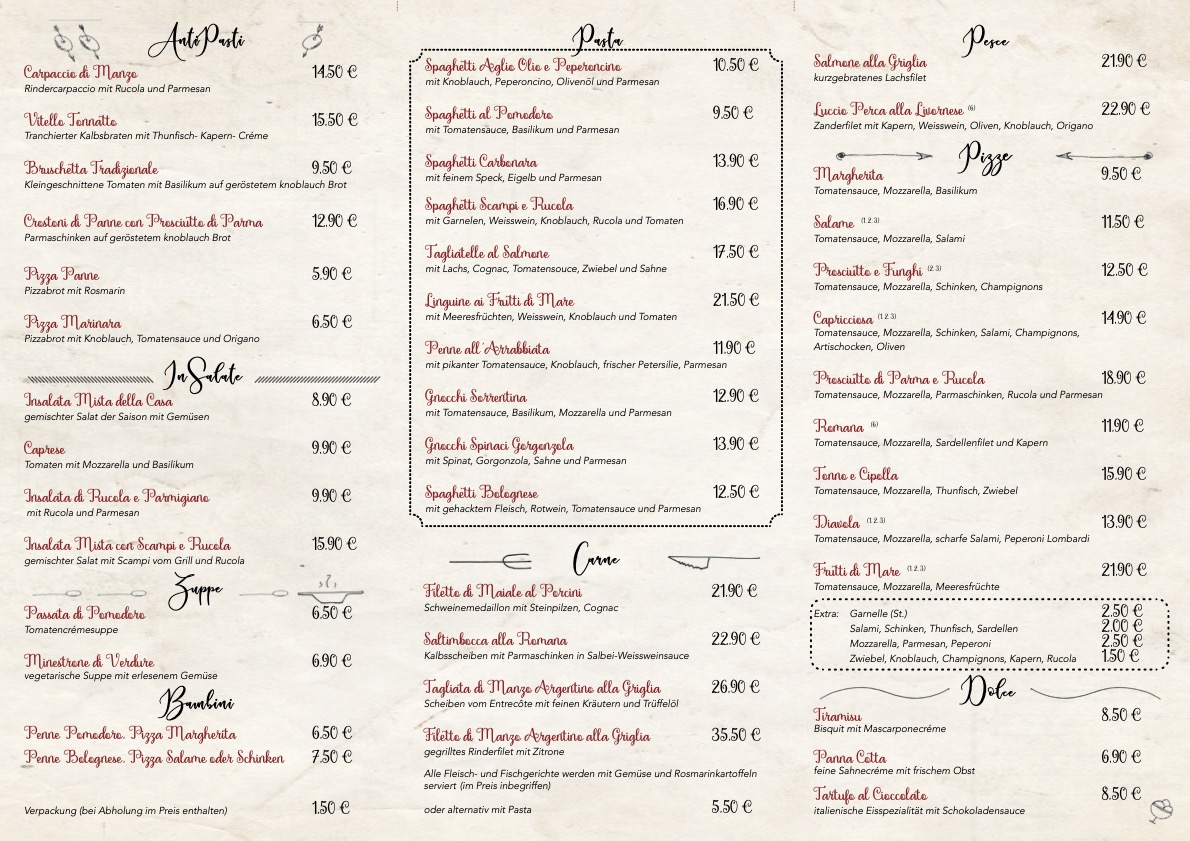 AntiPasti
Carpaccio di Manzo 14.50 €
Rindercarpaccio mit Rucola und Parmesan
Vitello Tonnatto 15.50 €
Tranchierter Kalbsbraten mit Thunfisch- Kapern- Créme
Bruschetta Tradizionale 9.50 €
Kleingeschnittene Tomaten mit Basilikum auf geröstetem knoblauch Brot
Crostoni di Panne con Prosciutto di Parma 12.90 €
Parmaschinken auf geröstetem knoblauch Brot
Pizza Panne 5.90 €
Pizzabrot mit Rosmarin
Pizza Marinara 6.50 €
Pizzabrot mit Knoblauch, Tomatensauce und Origano
InSalate
Insalata Mista della Casa 8.90 €
gemischter Salat der Saison mit Gemüsen
Caprese 9.90 €
Tomaten mit Mozzarella und Basilikum
Insalata di Rucola e Parmigiano 9.90 €
mit Rucola und Parmesan
Insalata Mista con Scampi e Rucola 15.90 €
gemischter Salat mit Scampi vom Grill und Rucola
Zuppe
Passata di Pomodoro 6.50 €
Tomatencrémesuppe
Minestrone di Verdure 6.90 €
vegetarische Suppe mit erlesenem Gemüse
Bambini
Penne Pomodoro. Pizza Margherita 6.50 €
Penne Bolognese. Pizza Salame oder Schinken 7.50 €
Verpackung (bei Abholung im Preis enthalten) 1.50 €
Pasta
Spaghetti Aglio Olio e Peperoncino 10.50 €
mit Knoblauch, Peperoncino, Olivenöl und Parmesan
Spaghetti al Pomodoro 9.50 €
mit Tomatensauce, Basilikum und Parmesan
Spaghetti Carbonara 13.90 €
mit feinem Speck, Eigelb und Parmesan
Spaghetti Scampi e Rucola 16.90 €
mit Garnelen, Weisswein, Knoblauch, Rucola und Tomaten
Tagliatelle al Salmone 17.50 €
mit Lachs, Cognac, Tomatensouce, Zwiebel und Sahne
Linguine ai Frutti di Mare 21.50 €
mit Meeresfrüchten, Weisswein, Knoblauch und Tomaten
Penne all'Arrabbiata 11.90 €
mit pikanter Tomatensauce, Knoblauch, frischer Petersilie, Parmesan
Gnocchi Sorrentina 12.90 €
mit Tomatensauce, Basilikum, Mozzarella und Parmesan
Gnocchi Spinaci Gorgonzola 13.90 €
mit Spinat, Gorgonzola, Sahne und Parmesan
Spaghetti Bolognese 12.50 €
mit gehacktem Fleisch, Rotwein, Tomatensauce und Parmesan
Carne
Filetto di Maiale al Porcini 21.90 €
Schweinemedaillon mit Steinpilzen, Cognac
Saltimbocca alla Romana 22.90 €
Kalbsscheiben mit Parmaschinken in Salbei-Weissweinsauce
Tagliata di Manzo Argentino alla Griglia 26.90 €
Scheiben vom Entrecôte mit feinen Kräutern und Trüffelöl
Filetto di Manzo Argentino alla Griglia 35.50 €
gegrilltes Rinderfilet mit Zitrone
Alle Fleisch- und Fischgerichte werden mit Gemüse und Rosmarinkartoffeln
serviert (im Preis inbegriffen)
oder alternativ mit Pasta 5.50 €
Pesce
Salmone alla Griglia 21.90 €
kurzgebratenes Lachsfilet
Luccio Perca alla Livornese (6) 22.90 €
Zanderfilet mit Kapern, Weisswein, Oliven, Knoblauch, Origano
Pizze
Margherita 9.50 €
Tomatensauce, Mozzarella, Basilikum
Salame (1.2.3) 11.50 €
Tomatensauce, Mozzarella, Salami
Prosciutto e Funghi (2.3) 12.50 €
Tomatensauce, Mozzarella, Schinken, Champignons
Capricciosa (1.2.3) 14.90 €
Tomatensauce, Mozzarella, Schinken, Salami, Champignons,
Artischocken, Oliven
Prosciutto di Parma e Rucola 18.90 €
Tomatensauce, Mozzarella, Parmaschinken, Rucola und Parmesan
Romana (6) 11.90 €
Tomatensauce, Mozzarella, Sardellenfilet und Kapern
Tonno e Cipolla 15.90 €
Tomatensauce, Mozzarella, Thunfisch, Zwiebel
Diavola (1.2.3) 13.90 €
Tomatensauce, Mozzarella, scharfe Salami, Peperoni Lombardi
Frutti di Mare (1.2.3) 21.90 €
Tomatensauce, Mozzarella, Meeresfrüchte
Extra: Garnelle (St.) 2.50 €
Salami, Schinken, Thunfisch, Sardellen 2.00 €
Mozzarella, Parmesan, Peperoni 2.50 €
Zwiebel, Knoblauch, Champignons, Kapern, Rucola 1.50 €
Dolce
Tiramisu 8.50 €
Bisquit mit Mascarponecréme
Panna Cotta 6.90 €
feine Sahnecréme mit frischem Obst
Tartufo al Cioccolato 8.50 €
italienische Eisspezialität mit Schokoladensauce